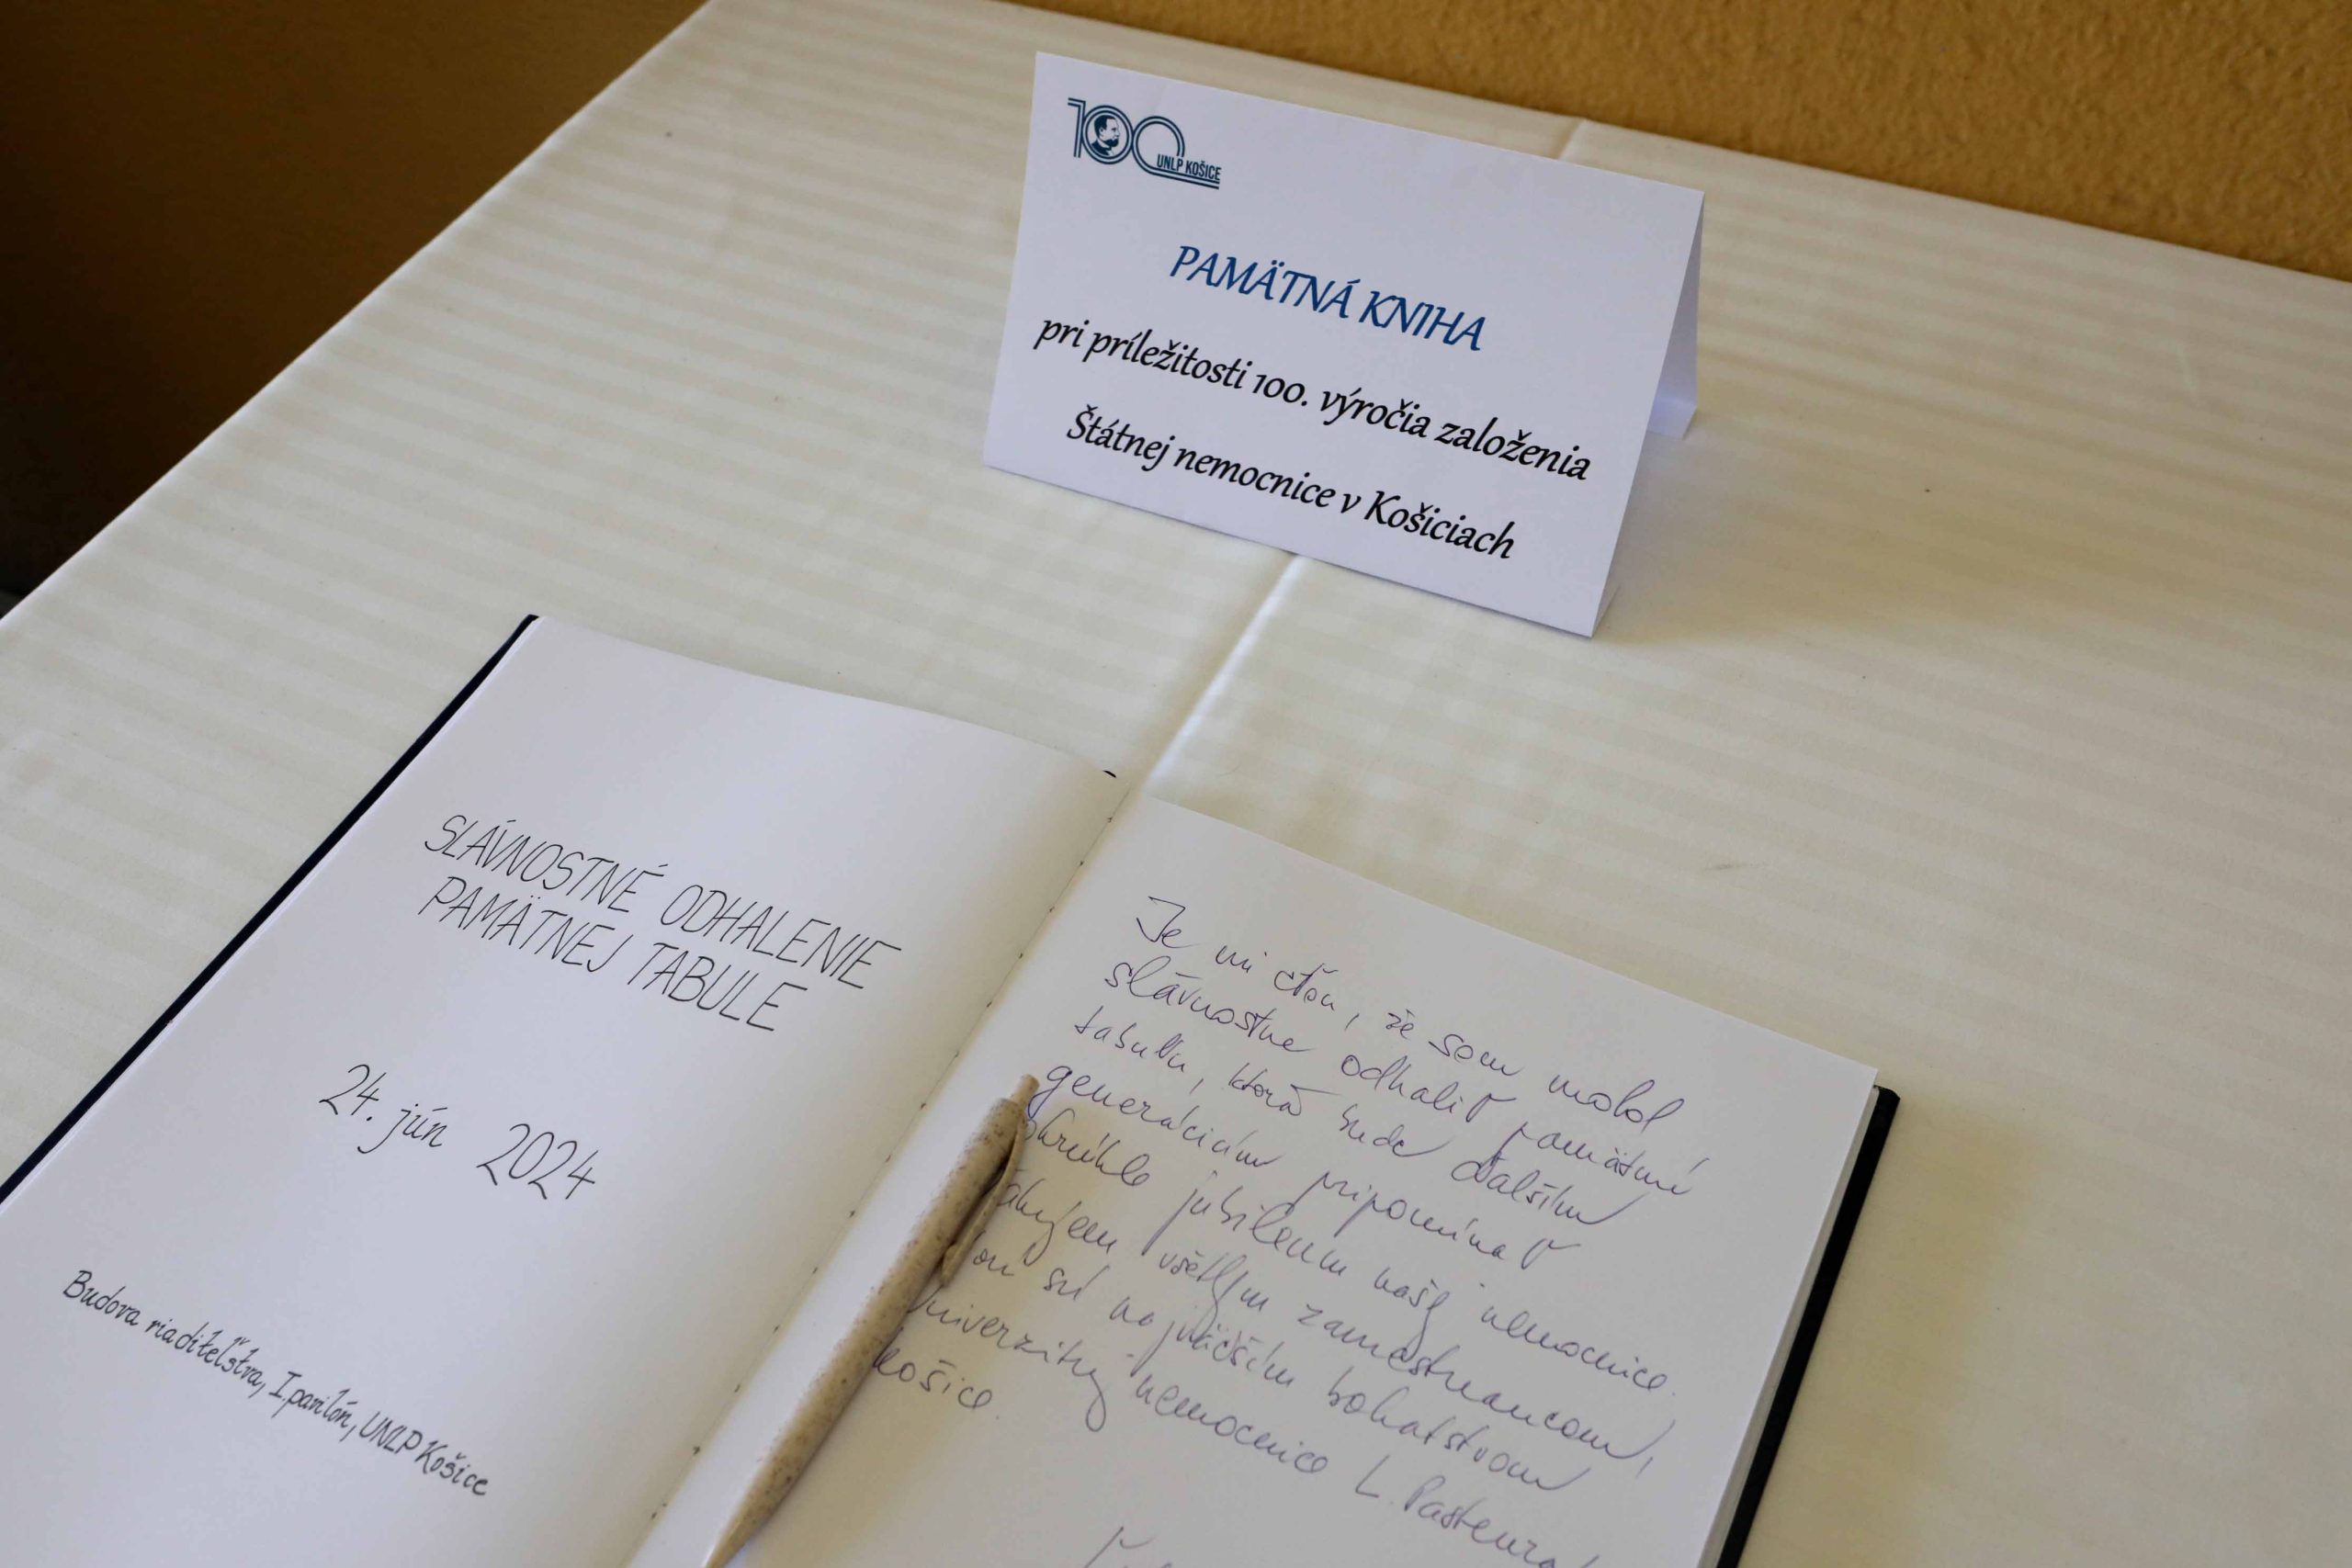 100
UNLP KOŠICE
PAMÄTNÁ KNIHA
pri príležitosti 100. výročia založenia
Štátnej nemocnice v Košiciach
SLÁVNOSTNÉ ODHALENIE
PAMÄTNEJ TABULE
24. jún 2024
Budova riaditeľstva, I. pavilón, UNLP Košice
Je mi cťou, že som mohol
slávnostne odhaliť pamätnú
tabuľu, ktorá bude ďalším
generáciám pripomínať
okrúhle jubileum našej nemocnice.
všetkým zamestnancom,
sú najväčším bohatstvom
Univerzitnej nemocnice L. Pasteura
Košice.